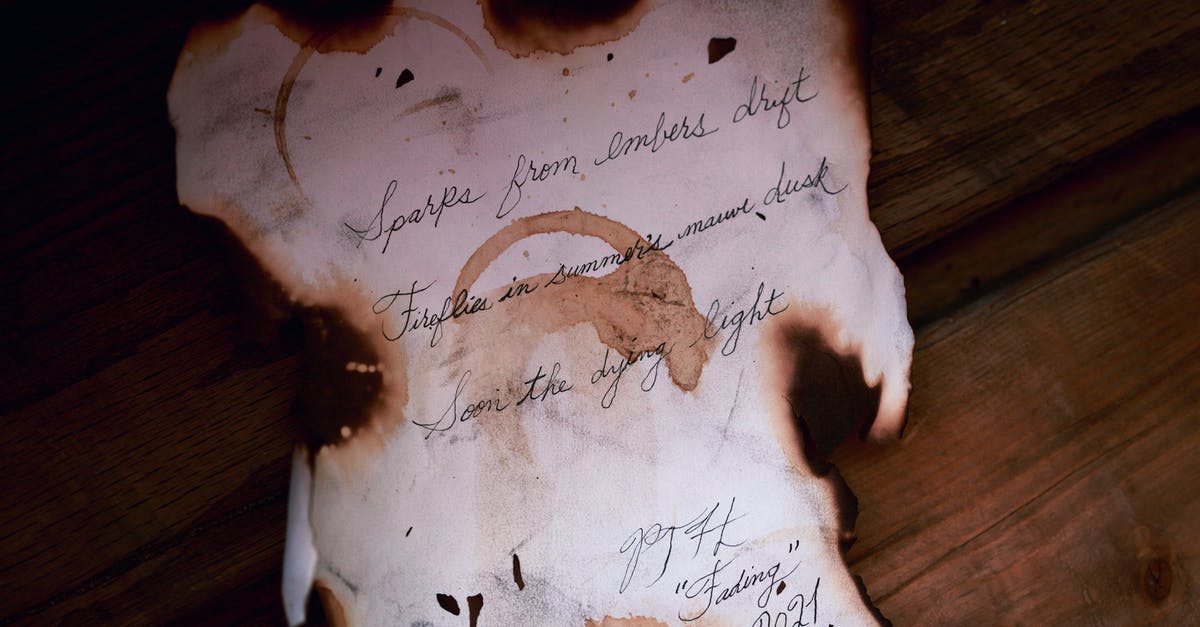 Sparks from embers drift
Fireflies in summer's mauve dusk
Soon the dying light
PJH
"Fading"
2021